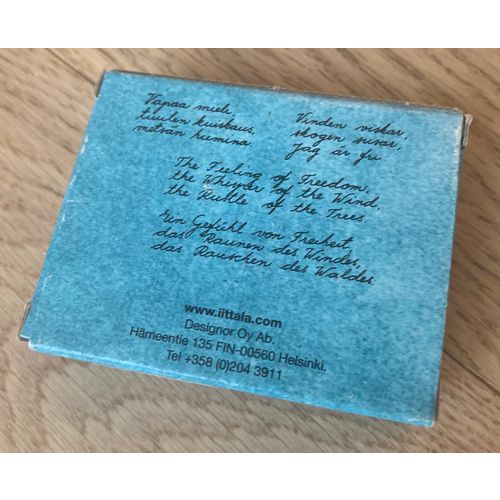 Vapaa mieli,
tuulen kuiskaus,
metsän humina
Vinden viskar,
skogen susar,
jag är fri
The Feeling of Freedom,
the Whisper of the Wind,
the Rustle of the Trees.
Ein Gefühl von Freiheit,
das Raunen des Windes,
das Rauschen des Waldes.
www.iittala.com
Designor Oy Ab.
Hämeentie 135 FIN-00560 Helsinki.
Tel +358 (0)204 3911